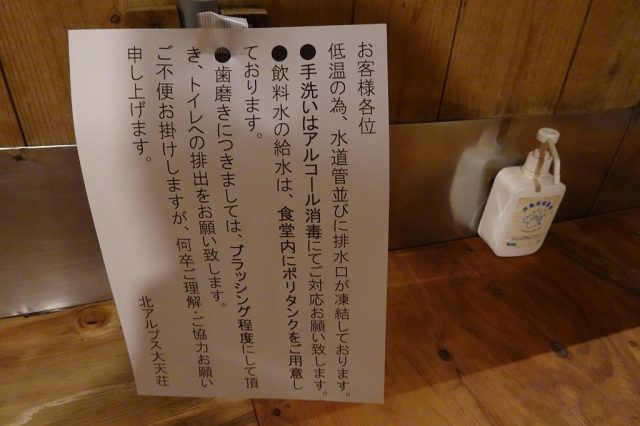 お客様各位
低温の為、水道管並びに排水口が凍結しております。
●手洗いはアルコール消毒にてご対応お願い致します。
●飲料水の給水は、食堂内にポリタンクをご用意し
ております。
●歯磨きにつきましては、ブラッシング程度にして頂
き、トイレへの排出をお願い致します。
ご不便お掛けしますが、何卒ご理解・ご協力お願い
申し上げます。
北アルプス大天荘